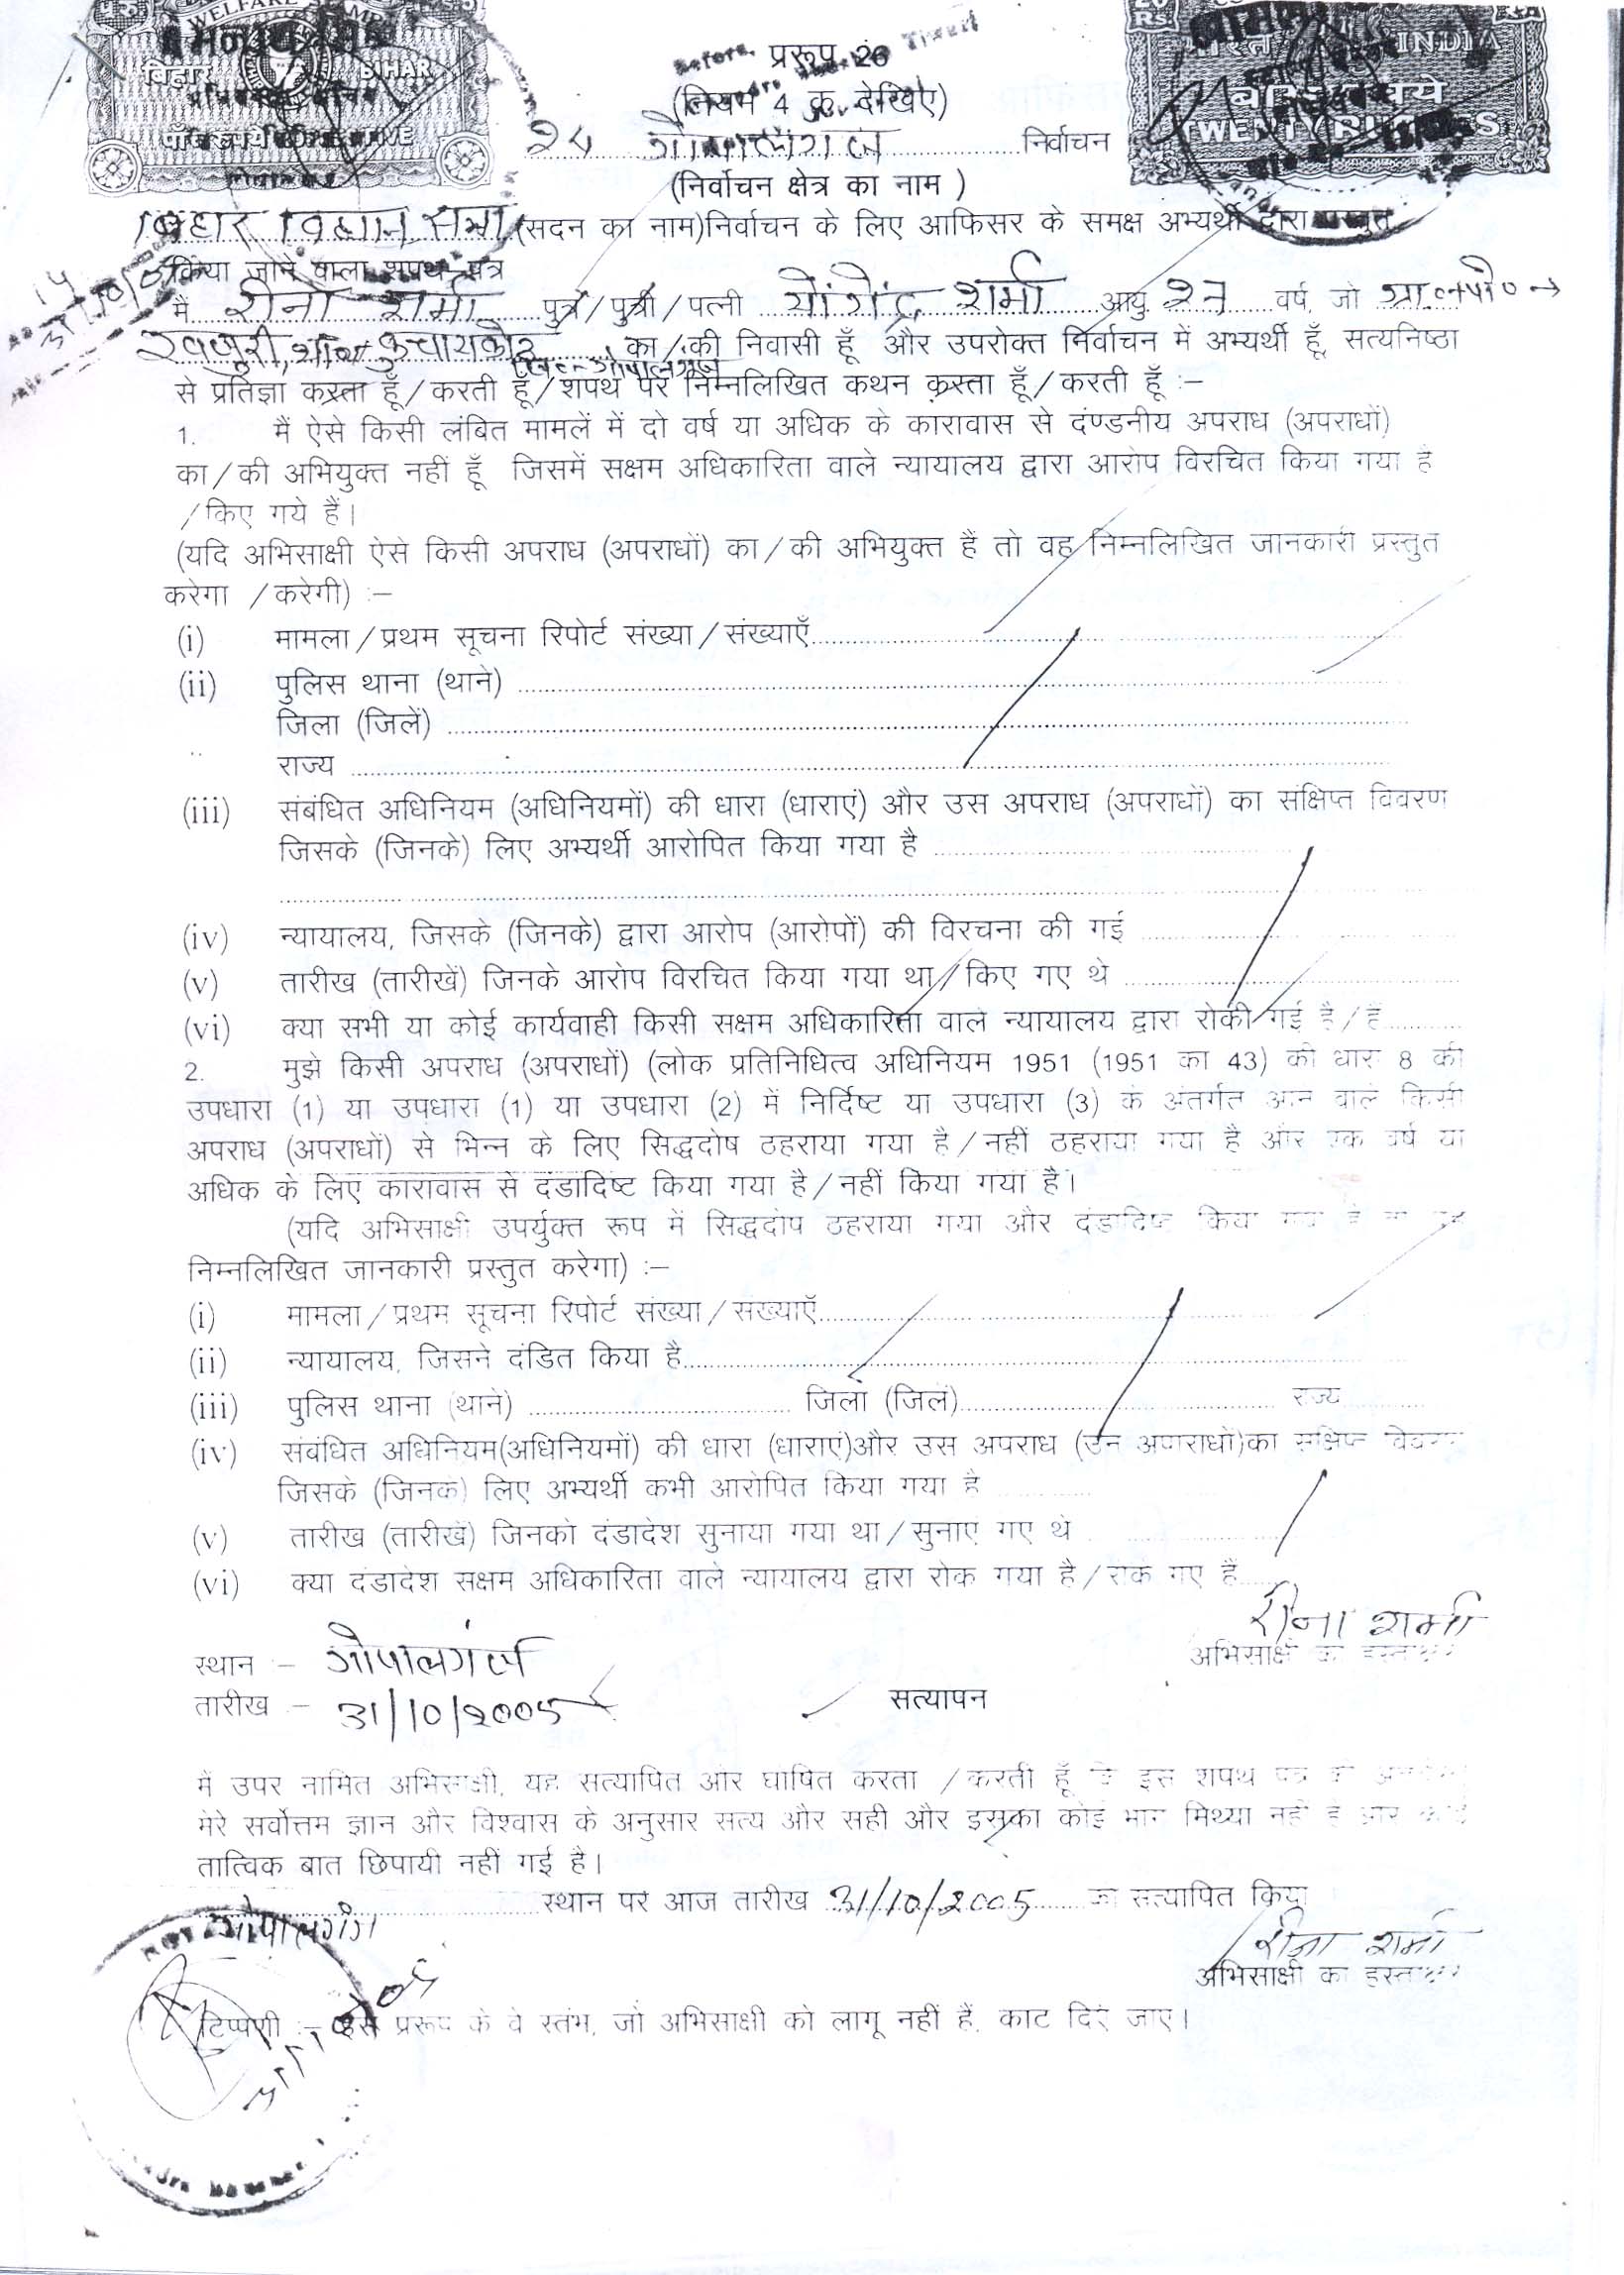 WELFARE STAMP
बिहार BIHAR
पाँच रुपये FIVE
INDIA
TWENTY RUPEES
प्ररूप 26
(नियम 4 क देखिए)
गोपालगंज निर्वाचन
(निर्वाचन क्षेत्र का नाम )
बिहार विधान सभा (सदन का नाम)निर्वाचन के लिए आफिसर के समक्ष अभ्यर्थी द्वारा प्रस्तुत
किया जाने वाला शपथ-पत्र
मैं रीना शर्मा पुत्र/पुत्री/पत्नी योगेंद्र शर्मा आयु वर्ष, जो
खजुरी, कुचायकोट का/की निवासी हूँ और उपरोक्त निर्वाचन में अभ्यर्थी हूँ, सत्यनिष्ठा
गोपालगंज
से प्रतिज्ञा करता हूँ/करती हूँ/शपथ पर निम्नलिखित कथन करता हूँ/करती हूँ :–
1. मैं ऐसे किसी लंबित मामलें में दो वर्ष या अधिक के कारावास से दंण्डनीय अपराध (अपराधों)
का/की अभियुक्त नहीं हूँ जिसमें सक्षम अधिकारिता वाले न्यायालय द्वारा आरोप विरचित किया गया है
/किए गये हैं।
(यदि अभिसाक्षी ऐसे किसी अपराध (अपराधों) का/की अभियुक्त हैं तो वह निम्नलिखित जानकारी प्रस्तुत
करेगा /करेगी) :–
(i) मामला/प्रथम सूचना रिपोर्ट संख्या/संख्याएँ
(ii) पुलिस थाना (थाने)
जिला (जिलें)
राज्य
(iii) संबंधित अधिनियम (अधिनियमों) की धारा (धाराएं) और उस अपराध (अपराधों) का संक्षिप्त विवरण
जिसके (जिनके) लिए अभ्यर्थी आरोपित किया गया है
(iv) न्यायालय, जिसके (जिनके) द्वारा आरोप (आरोपों) की विरचना की गई
(v) तारीख (तारीखें) जिनके आरोप विरचित किया गया था/किए गए थे
(vi) क्या सभी या कोई कार्यवाही किसी सक्षम अधिकारिता वाले न्यायालय द्वारा रोकी गई है/हैं
2. मुझे किसी अपराध (अपराधों) (लोक प्रतिनिधित्व अधिनियम 1951 (1951 का 43) की धारा 8 की
उपधारा (1) या उपधारा (1) या उपधारा (2) में निर्दिष्ट या उपधारा (3) के अंतर्गत आने वाले किसी
अपराध (अपराधों) से भिन्न के लिए सिद्धदोष ठहराया गया है/नहीं ठहराया गया है और एक वर्ष या
अधिक के लिए कारावास से दंडादिष्ट किया गया है/नहीं किया गया है।
(यदि अभिसाक्षी उपर्युक्त रूप में सिद्धदोष ठहराया गया और दंडादिष्ट किया गया है
निम्नलिखित जानकारी प्रस्तुत करेगा) :–
(i) मामला/प्रथम सूचना रिपोर्ट संख्या/सख्याएँ
(ii) न्यायालय, जिसने दंडित किया है
(iii) पुलिस थाना (थाने) जिला (जिलें) राज्य
(iv) संबंधित अधिनियम(अधिनियमों) की धारा (धाराएं)और उस अपराध (उन अपराधों)का संक्षिप्त विवरण
जिसके (जिनके) लिए अभ्यर्थी कभी आरोपित किया गया है
(v) तारीख (तारीखें) जिनको दंडादेश सुनाया गया था/सुनाए गए थे
(vi) क्या दंडादेश सक्षम अधिकारिता वाले न्यायालय द्वारा रोक गया है/राके गए हैं
रीना शर्मा
अभिसाक्षी का हस्ताक्षर
स्थान :– गोपालगंज
तारीख :– 31/10/2005
सत्यापन
मैं उपर नामित अभिसाक्षी, यह सत्यापित और घोषित करता /करती हूँ कि इस शपथ पत्र की
मेरे सर्वोत्तम ज्ञान और विश्वास के अनुसार सत्य और सही और इसका कोई भाग मिथ्या नहीं है और कोई
तात्विक बात छिपायी नहीं गई है।
गोपालगंज स्थान पर आज तारीख 31/10/2005 को सत्यापित किया
रीना शर्मा
अभिसाक्षी का हस्ताक्षर
टिप्पणी :– इस प्ररूप के वे स्तंभ, जो अभिसाक्षी को लागू नहीं हैं, काट दिए जाए।